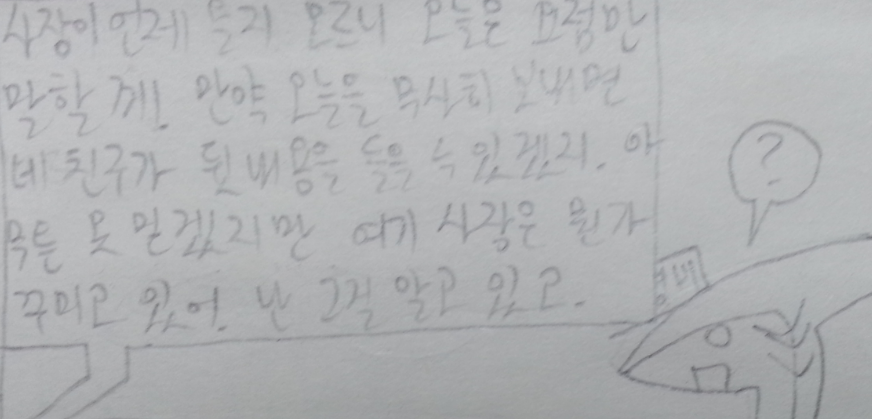 사장이 언제 올지 모르니 오늘은 요점만
말할 께! 만약 오늘을 무사히 보내면
네 친구가 된 내용을 들을 수 있겠지. 아
무튼 못 믿겠지만 여기 사장은 뭔가
꾸미고 있어. 난 그걸 알고 있고.
?
경비